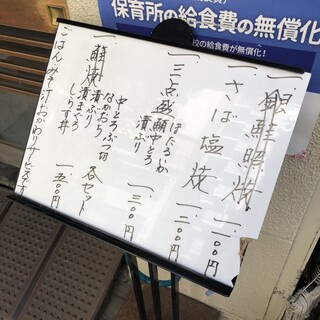 保育所の給食費の無償化
校の給食費が無償化!
一、銀鮭照焼 一二〇〇円
一、さば塩焼 一二〇〇円
一、三点盛 ほたるいか
中とろ
漬ぶり 一三〇〇円
中とろぶつ切
なかおち 漬まぐろ
漬ぶり 各セット
しらす丼 一五〇〇円
ごはんみそ汁おかわりサービスです